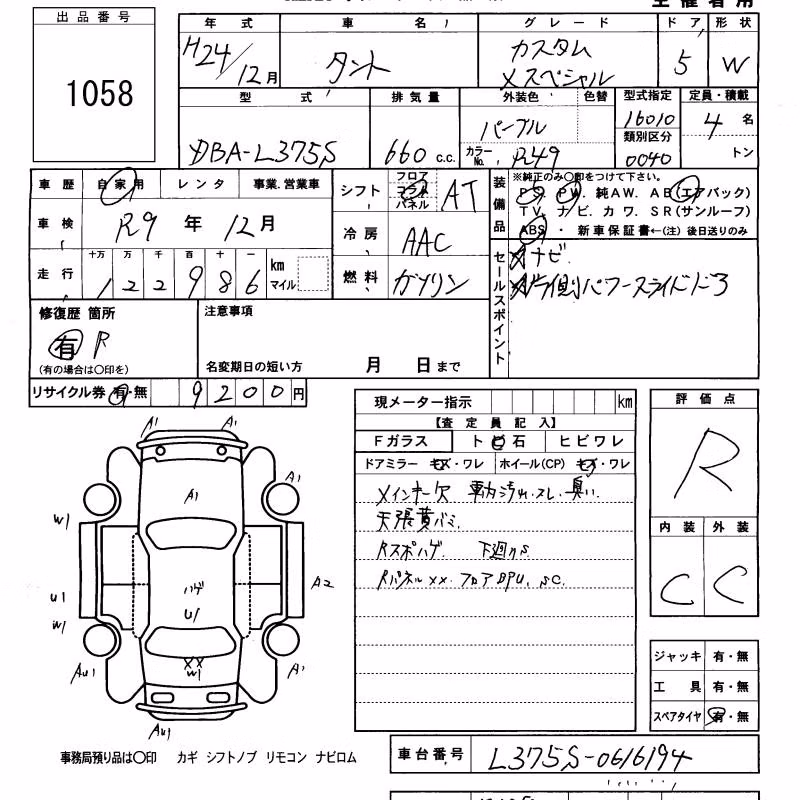 出品番号
1058
年式 車名 グレード ドア 形状
H24/12月 タント カスタム Xスペシャル 5 W
型式 排気量 外装色 色替 型式指定 定員・積載
DBA-L375S 660 c.c. パープル カラーNo. R49 16010 4 名
類別区分 0040 トン
車歴 自家用 レンタ 事業.営業車
車検 R9 年 12月
走行 十万 万 千 百 十 一
122986 km マイル
シフト フロア コラム パネル AT
冷房 AAC
燃料 ガソリン
装備品 ※純正のみ〇印をつけて下さい。
PS. PW. 純AW. AB(エアバック)
TV. ナビ. カワ. SR(サンルーフ)
ABS ・ 新車保証書←(注) 後日送りのみ
セールスポイント
ナビ
パワースライドドア
修復歴 箇所
有 R
(有の場合は〇印を)
注意事項
名変期日の短い方 月 日まで
リサイクル券 有・無 9200円
現メーター指示 km
【査定員記入】
Fガラス トビ石 ヒビワレ
ドアミラー キズ・ワレ ホイール(CP) キズ・ワレ
メインキー欠 車内汚れ.スレ.臭い.
天張黄バミ
Rスポハゲ 下廻りS
Rパネルxx. フロア
評価点
R
内装 外装
C C
ジャッキ 有・無
工具 有・無
スペアタイヤ 有・無
A1 A1
A1 A1
W1
U1 ハゲ A2
W1 U1
XX
W1
AU1 A1
AU1
事務局預り品は〇印 カギ シフトノブ リモコン ナビロム
車台番号 L375S-0616194